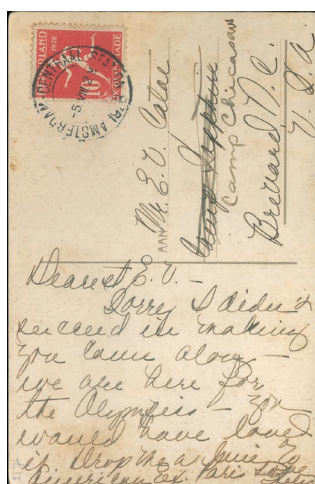 1928
10
AMSTERDAM CENTRAAL STATION
Mr. E. V.
Camp
Camp Chicasaw
Brevard, N.C.
U.S.A.
AAN
Dearest E.V. –
Sorry I didn't
succeed in making
you come along –
we are here for
the Olympics – you
would have loved
it Drop me a line to
American Ex. Paris Love